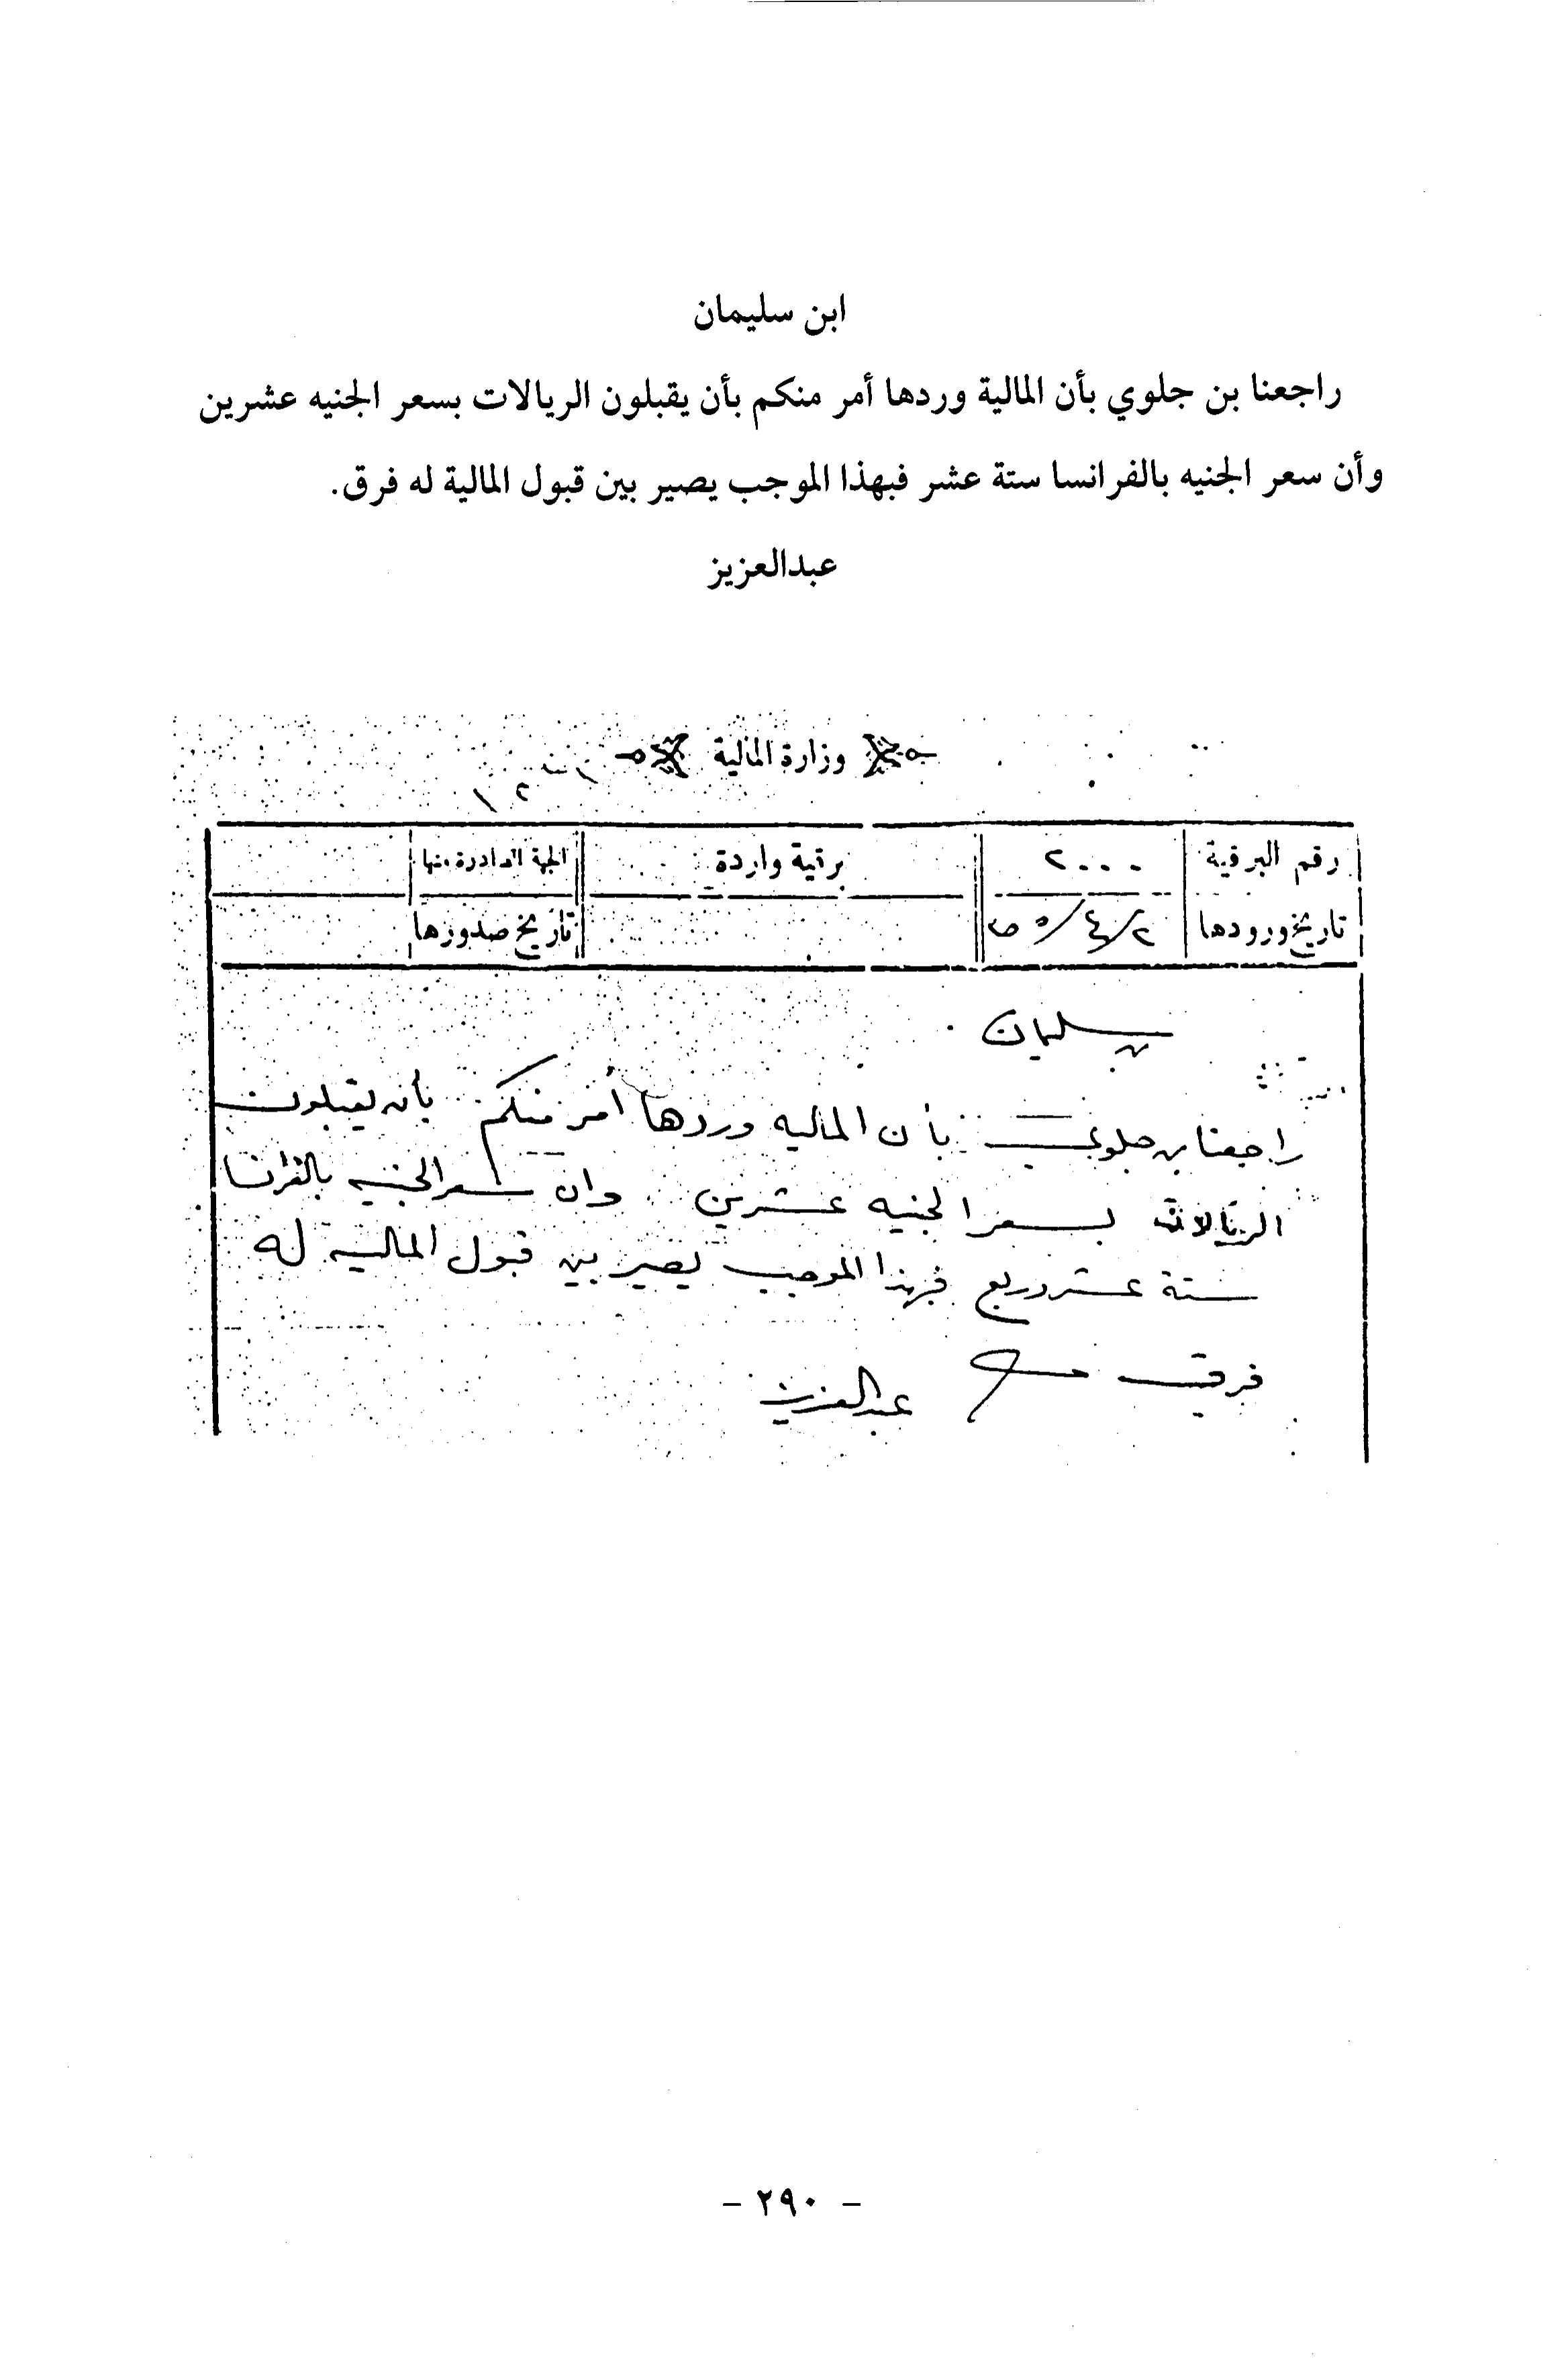 ابن سليمان
راجعنا بن جلوي بأن المالية وردها أمر منكم بأن يقبلون الريالات بسعر الجنيه عشرين
وأن سعر الجنيه بالفرانسا ستة عشر فبهذا الموجب يصير بين قبول المالية له فرق.
عبدالعزيز
وزارة المالية
رقم البرقية ٢٠٠٠ برقية واردة الجهة الصادرة منها
تاريخ ورودها ٢/٤/٥ تاريخ صدورها
بن سليمان
راجعنا بن جلوي بأن الماليه وردها أمر منكم بأن يقبلون
الريالات بسعر الجنيه عشرين وان سعر الجنيه بالفرانسا
ستة عشر وربع فبهذا الموجب يصير بين قبول الماليه له
فرق
عبدالعزيز
- ٢٩٠ -